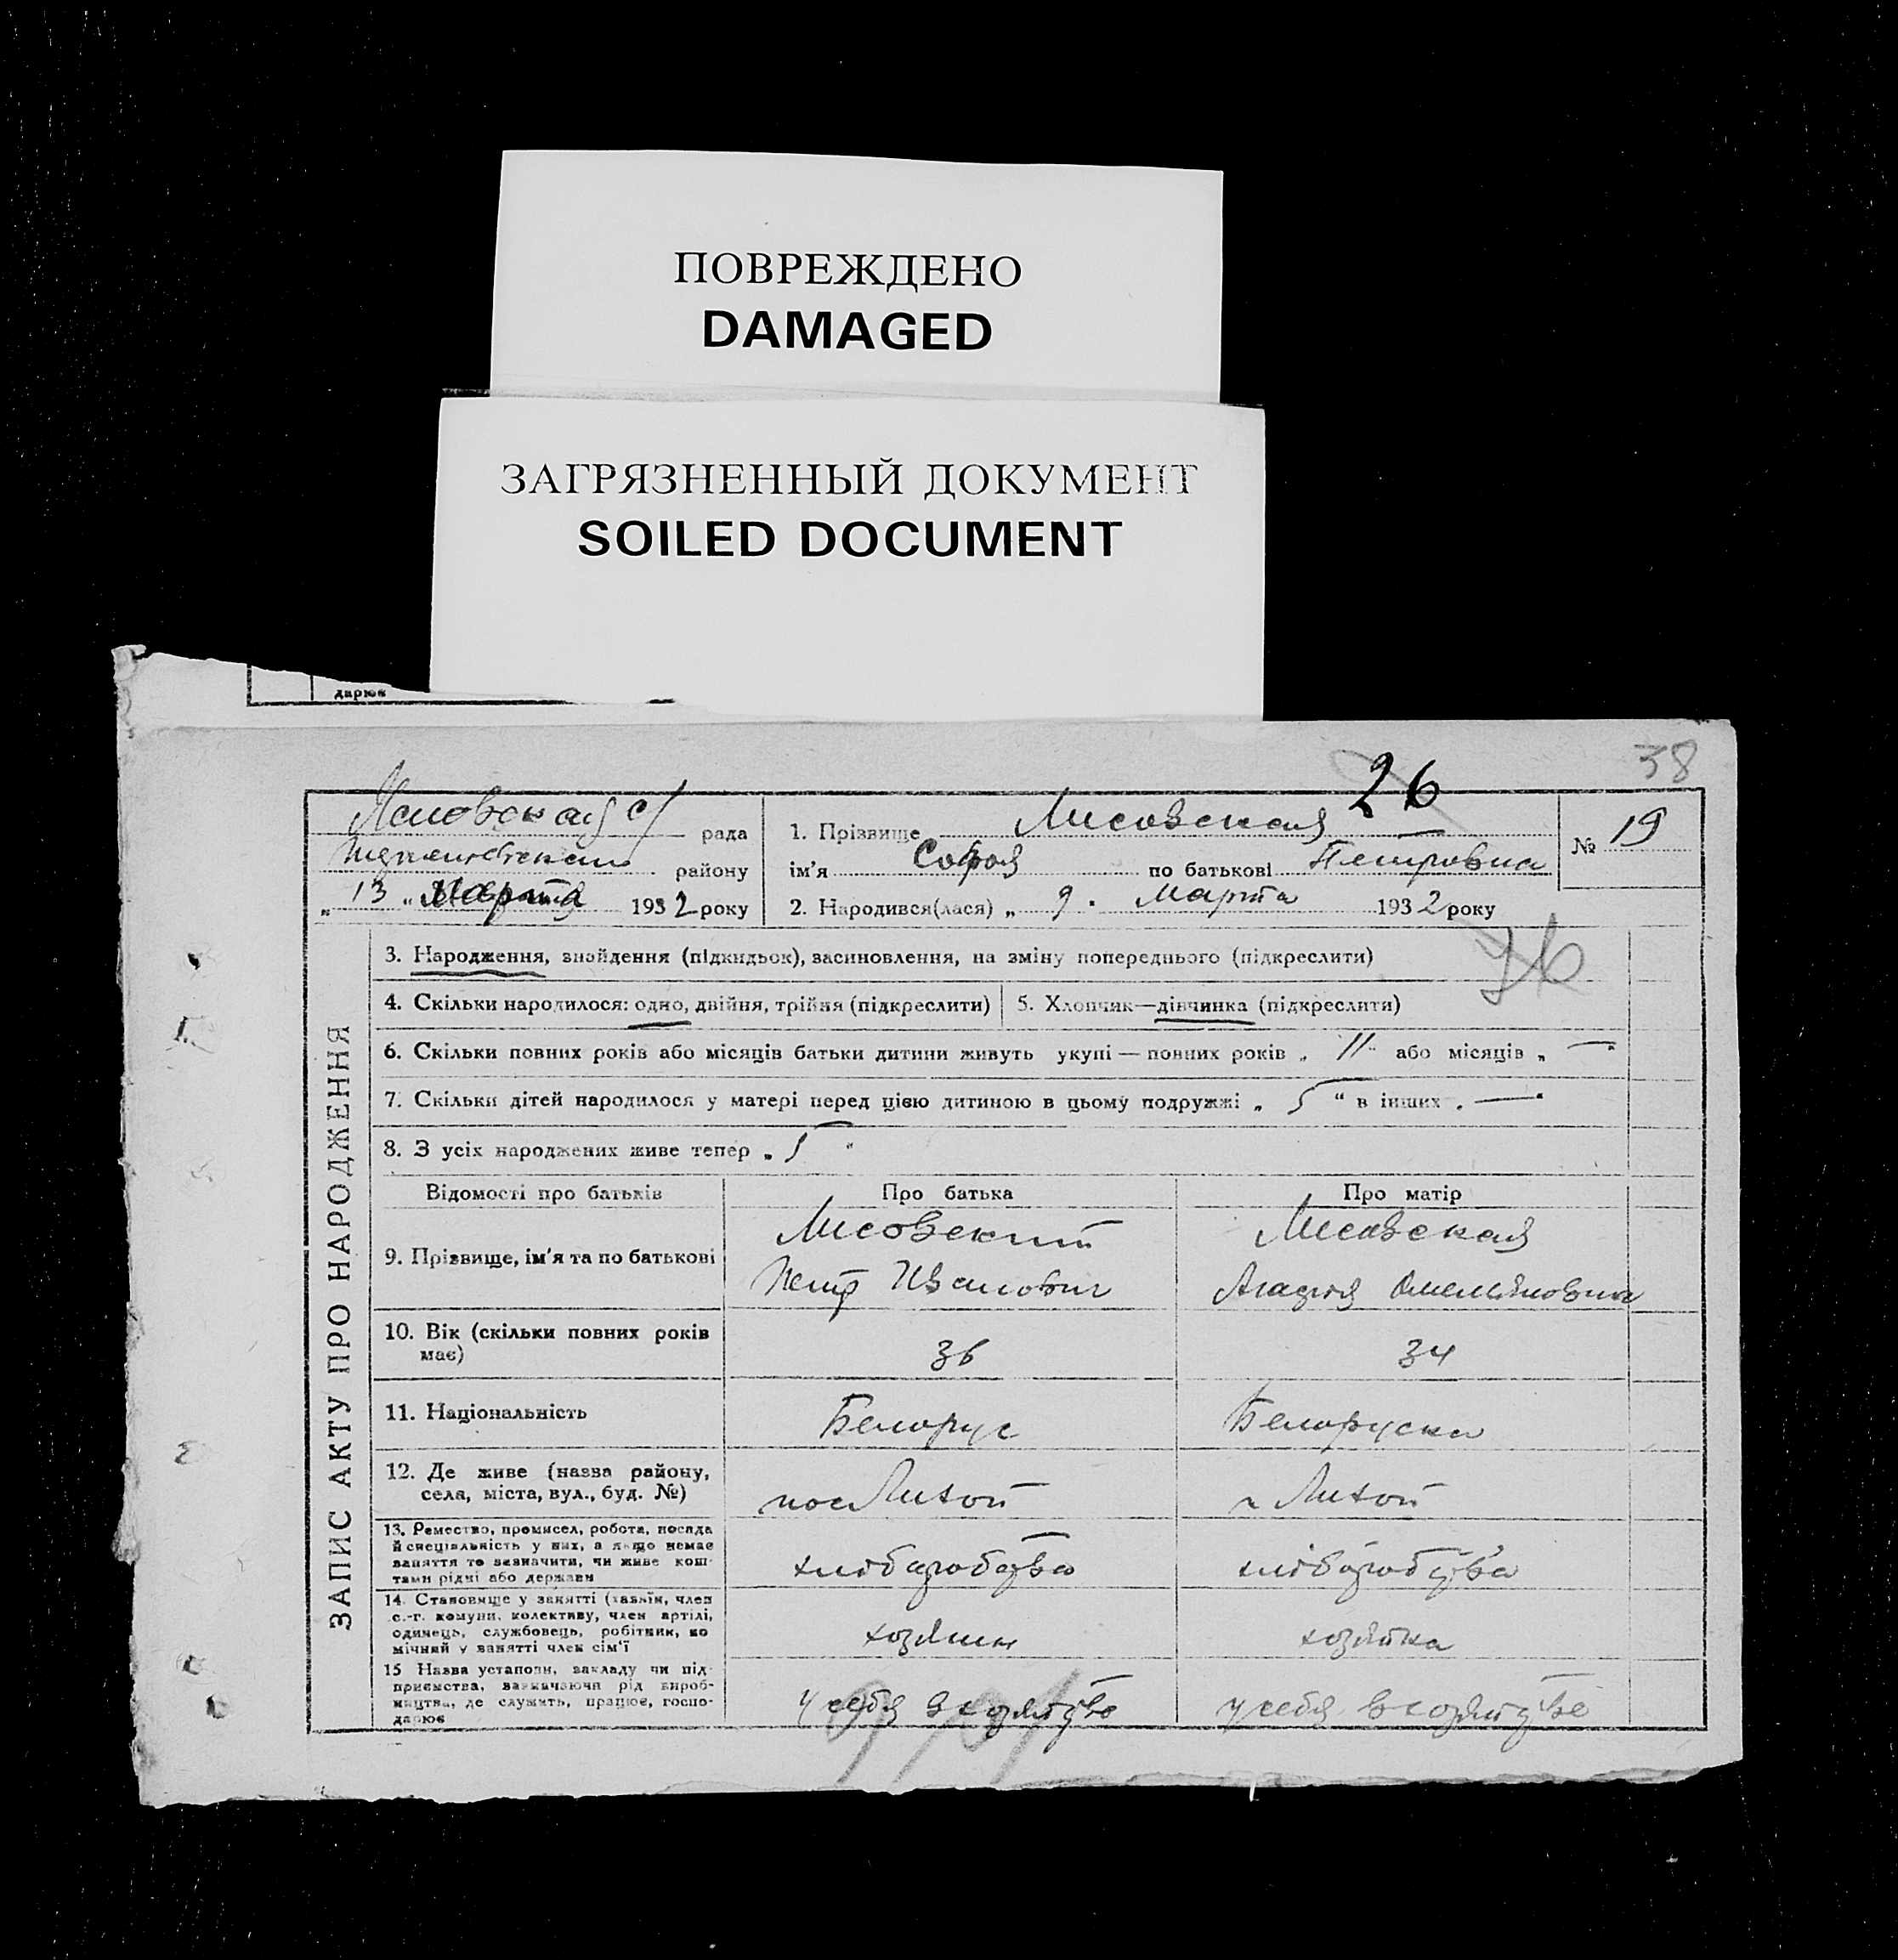 ПОВРЕЖДЕНО
DAMAGED
ЗАГРЯЗНЕННЫЙ ДОКУМЕНТ
SOILED DOCUMENT
дарює
38
26
с/ рада
1. Прізвище Лисовская
№ 19
району
ім'я Софья по батькові Петровна
„ 13 " Марта 1932 року
2. Народився(лася) „ 9 " Марта 1932 року
ЗАПИС АКТУ ПРО НАРОДЖЕННЯ
3. Народження, знайдення (підкидьок), васиновлення, на зміну попереднього (підкреслити)
4. Скільки народилося: одно, двійня, трійня (підкреслити)
5. Хлопчик—дівчинка (підкреслити)
6. Скільки повних років або місяців батьки дитини живуть укупі — повних років „ 11 " або місяців „ — "
7. Скільки дітей народилося у матері перед цією дитиною в цьому подружжі „ 5 " в інших „ — "
8. З усіх народжених живе тепер „ 5 "
Відомості про батьків
Про батька
Про матір
9. Прізвище, ім'я та по батькові
Лисовский
Петр Иванович
Лисовская
Омельяновна
10. Вік (скільки повних років має)
36
34
11. Національність
Белорус
Белоруска
12. Де живе (назва району,
села, міста, вул., буд. №)
пос Лихой
п Лихой
13. Ремество, промисел, робота, посада
й спеціяльність у них, а якщо немає
заняття то зазначити, чи живе кош-
тами рідні або держави
хліборобство
хліборобство
14. Становище у занятті (хазяїн, член
с.-г. комуни, колективу, член артілі,
одинець, службовець, робітник, по
мічний у занятті член сім'ї
хозяин
хозяйка
15 Назва установи, закладу чи під-
приємства, зазначаючи рід вироб-
ництва, де служить, працює, госпо-
дарює
у себя в хозяйстве
у себя в хозяйстве